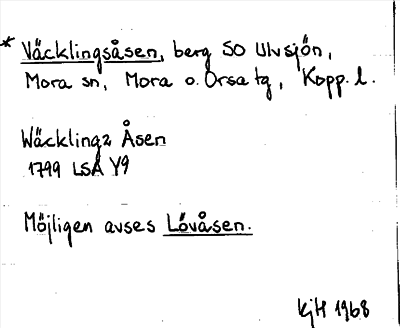 * Väcklingsåsen, berg SO Ulvsjön,
Mora sn, Mora o. Orsa tg, Kopp. l.
Wäcklingz Åsen
1799 LSA Y9
Möjligen avses Lövåsen.
KjH 1968